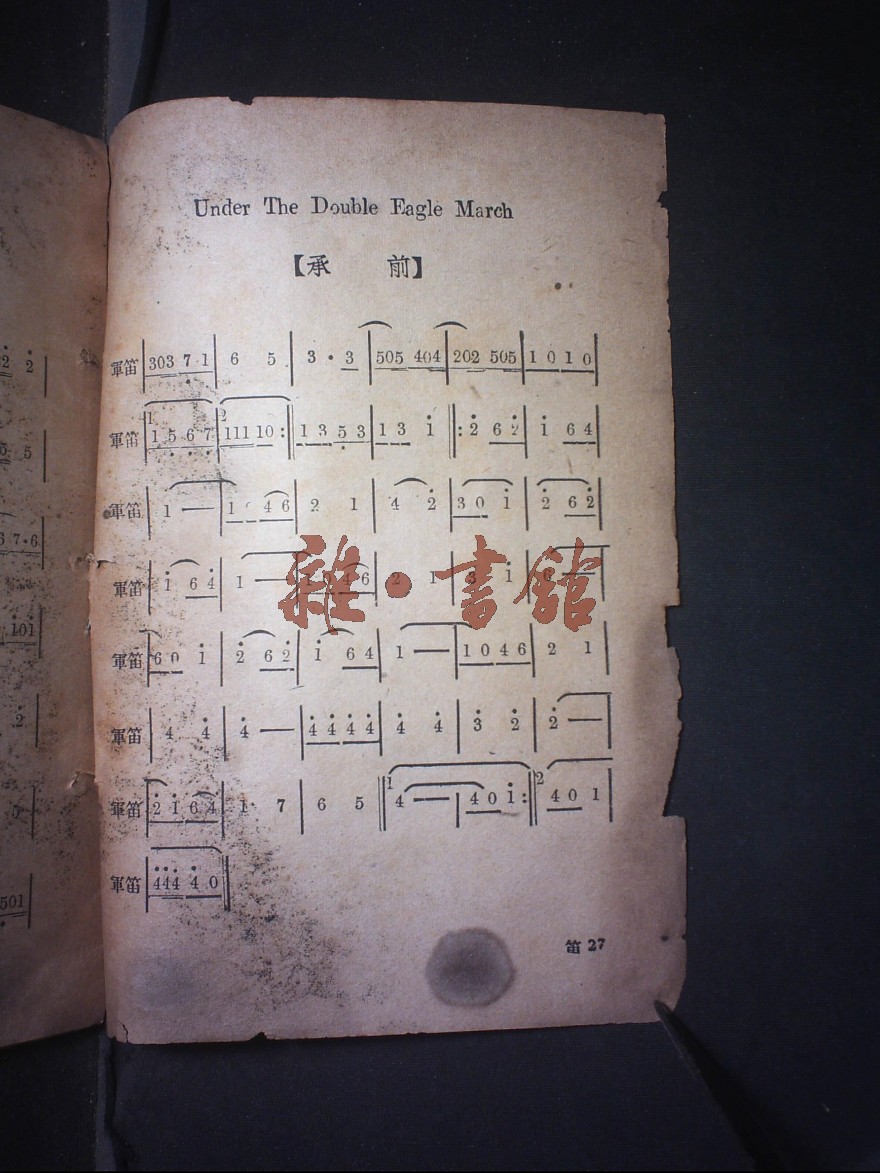 Under The Double Eagle March
【承 前】
軍笛 303 7 1 | 6 5 | 3 · 3 | 505 404 | 202 505 | 1 0 1 0
軍笛 1 5 6 7 | 2 111 10 :‖ 1 3 5 3 | 1 3 i ‖: 2 6 2 | i 6 4
軍笛 1 — | 1 4 6 | 2 1 | 4 2 | 3 0 i | 2 6 2
軍笛 i 6 4 | 1 — | 4 6 | 2 1 | 3 i | 6 —
軍笛 6 0 i | 2 6 2 | i 6 4 | 1 — | 1 0 4 6 | 2 1
軍笛 4 4 | 4 — | 4 4 4 4 | 4 4 | 3 2 | 2 —
軍笛 2 i 6 4 | 1 7 | 6 5 ‖ 1 4 — | 4 0 i :‖ 2 4 0 1
軍笛 444 4 0 ‖
笛 27
雜·書館
2
5
6 7·6
101
2
5
501